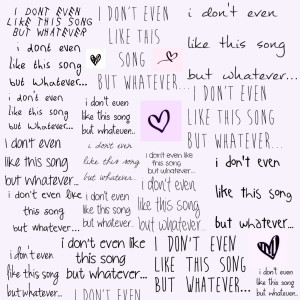 I DON'T EVEN
LIKE THIS SONG
BUT WHATEVER
I DON'T EVEN
LIKE THIS
SONG
BUT WHATEVER...
i don't even
like this song
but whatever...
i dont even
like this song
but whatever...
i don't even
like this song
but whatever...
i don't even
like this song
but whatever...
I DON'T EVEN
LIKE THIS
SONG
BUT WHATEVER...
i don't even
like this song
but whatever...
i dont even
like this song
but whatever...
i don't even like
this song
but whatever...
i don't even
like this song
but whatever...
i don't even like
this song
but whatever...
i don't even
like this song
but whatever...
i don't even
like this song
but whatever...
i don't even
like this song
but whatever...
i don't even
like this song
but whatever...
i don't even like
this song
but whatever...
I DON'T EVEN
LIKE THIS SONG
BUT WHATEVER...
i dont even
like this song
but whatever...
I DON'T EVEN